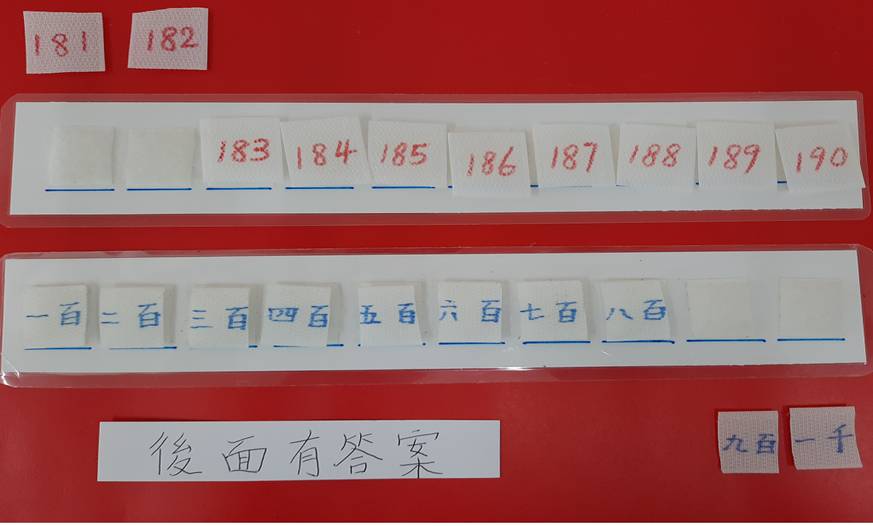 181 182
183 184 185 186 187 188 189 190
一百 二百 三百 四百 五百 六百 七百 八百
後面有答案
九百 一千